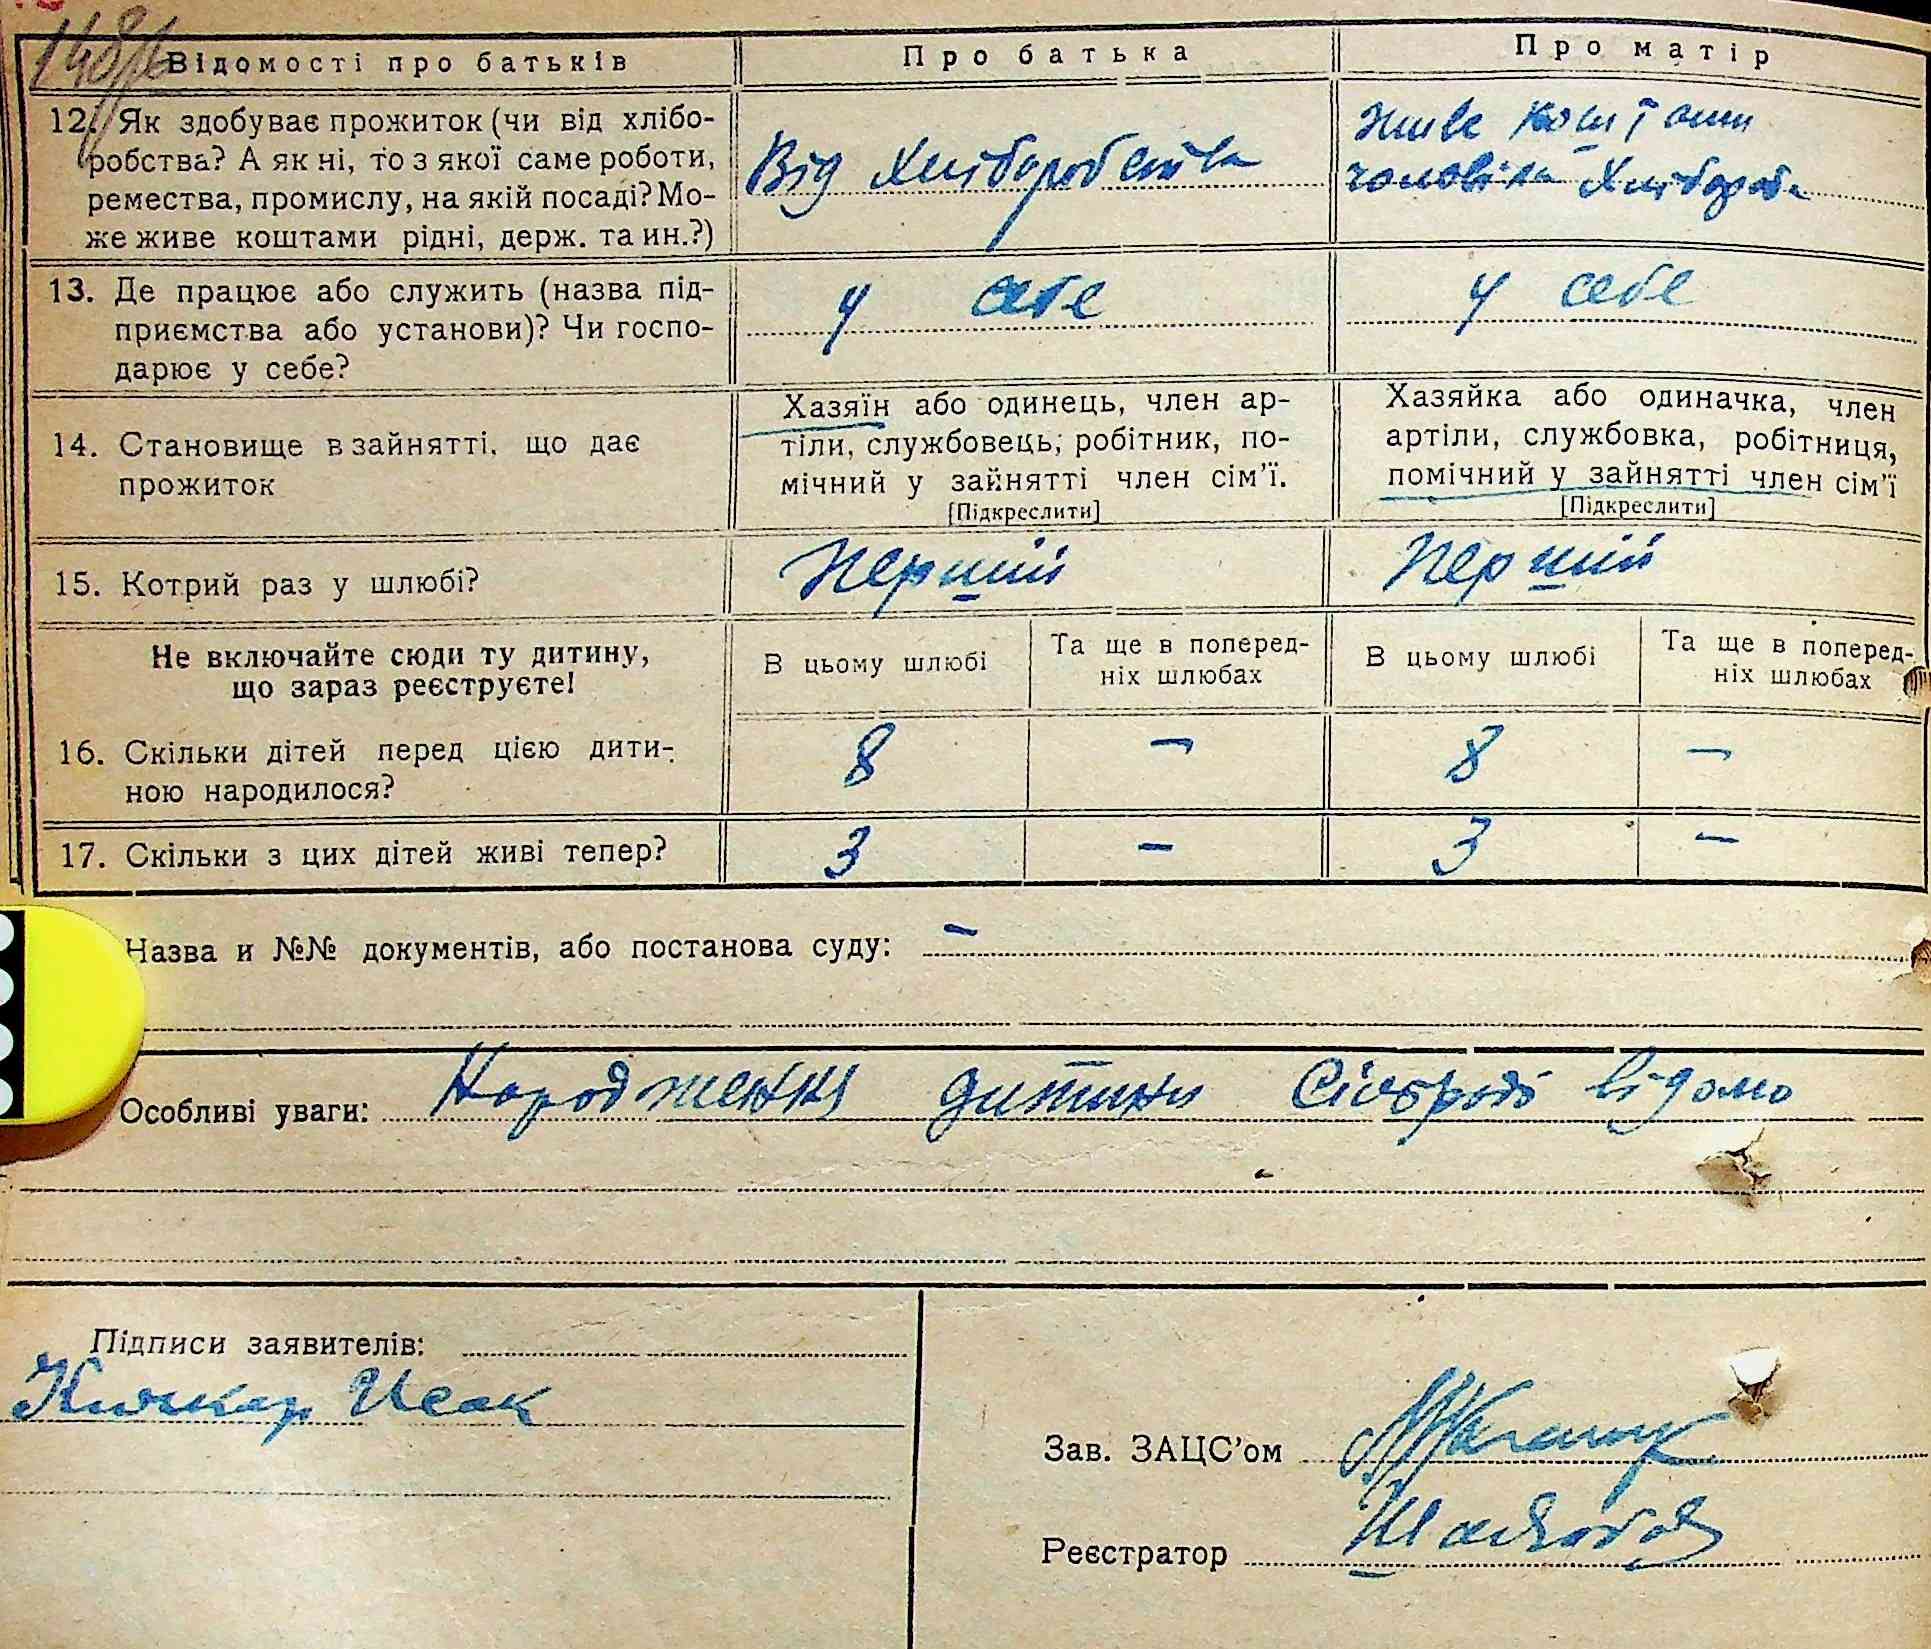 Відомості про батьків
Про батька
Про матір
12. Як здобуває прожиток (чи від хлібо-
робства? А як ні, то з якої саме роботи,
ремества, промислу, на якій посаді? Мо-
же живе коштами рідні, держ. та ин.?)
Від Хліборобства
живе коштами
чоловіка Хлібороба
13. Де працює або служить (назва під-
приємства або установи)? Чи госпо-
дарює у себе?
у себе
у себе
14. Становище в зайнятті, що дає
прожиток
Хазяїн або одинець, член ар-
тіли, службовець, робітник, по-
мічний у зайнятті член сім’ї.
[Підкреслити]
Хазяйка або одиначка, член
артіли, службовка, робітниця,
помічний у зайнятті член сім’ї
[Підкреслити]
15. Котрий раз у шлюбі?
Перший
Перший
Не включайте сюди ту дитину,
що зараз реєструєте!
В цьому шлюбі
Та ще в поперед-
ніх шлюбах
В цьому шлюбі
Та ще в поперед-
ніх шлюбах
16. Скільки дітей перед цією дити-
ною народилося?
8
–
8
–
17. Скільки з цих дітей живі тепер?
3
–
3
–
Назва и №№ документів, або постанова суду: –
Особливі уваги: Народження дитини Сільраді відомо
Підписи заявителів:
Исак
Зав. ЗАЦС’ом
Реєстратор